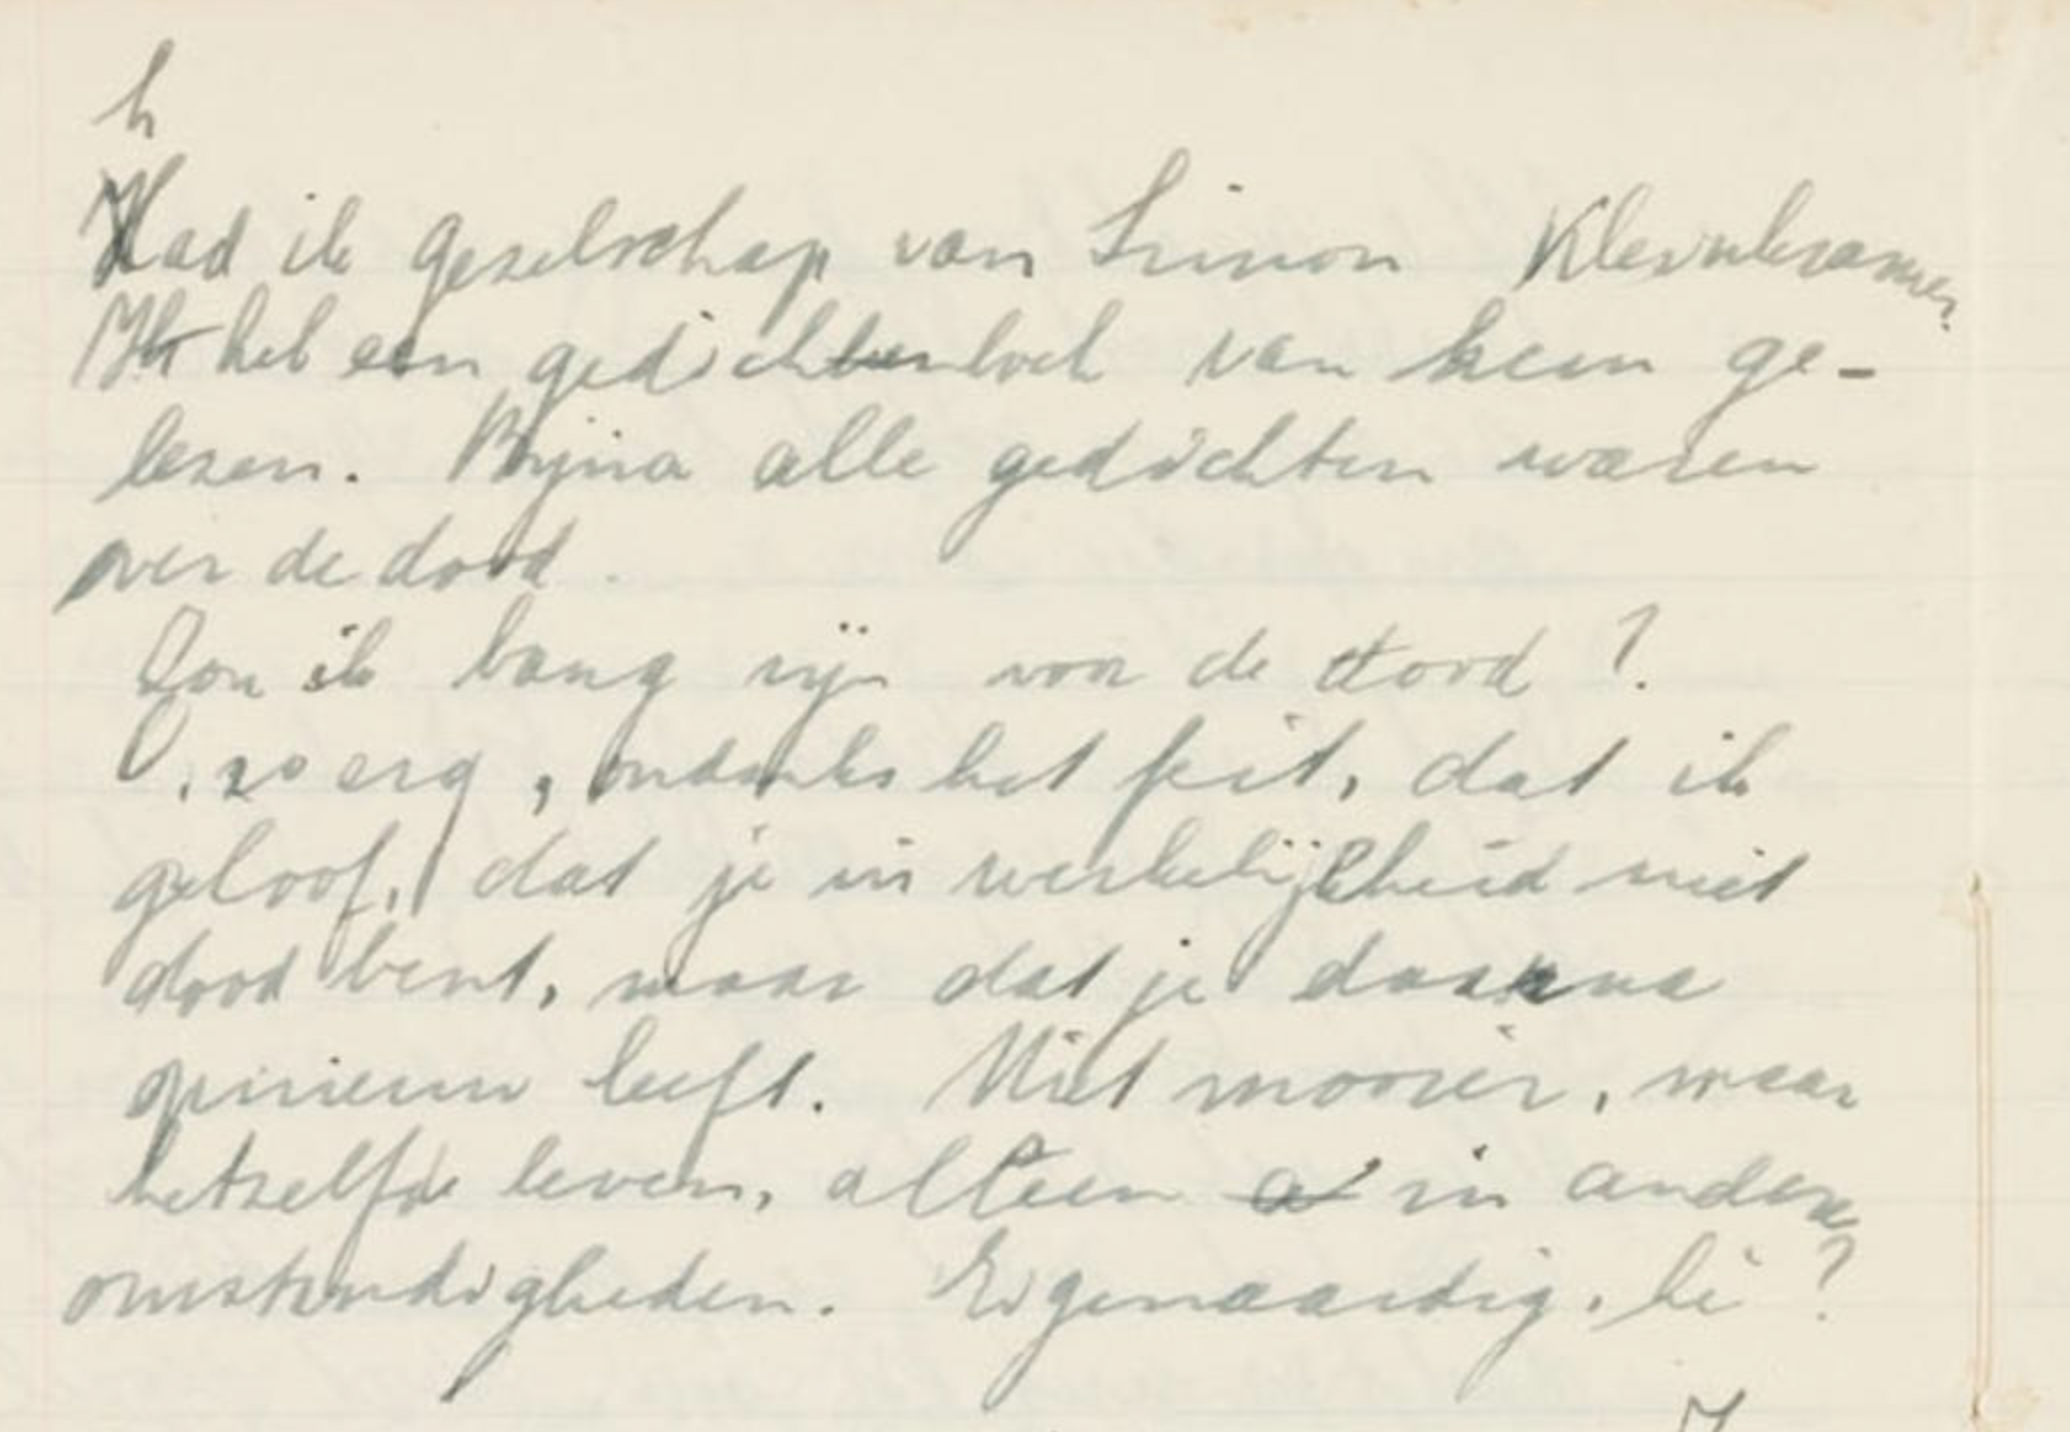 h
Had ik gezelschap van Simon Kleinkramer
Ik heb een gedichtenboek van hem ge-
lezen. Bijna alle gedichten waren
over de dood.
Zou ik bang zijn voor de dood ?
O, zo erg, ondanks het feit, dat ik
geloof, dat je in werkelijkheid niet
dood bent, maar dat je daarna
opnieuw leeft. Niet mooier, maar
hetzelfde leven, alleen a in andere
omstandigheden. Eigenaardig, hè ?